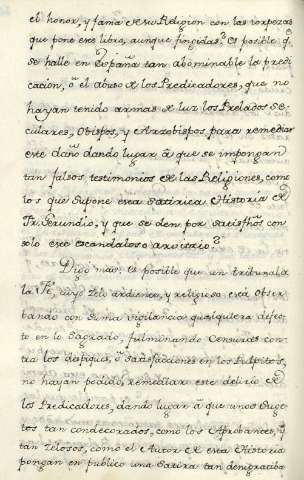 el honor, y fama de su Religion con las torpezas
que pone ese libro, aunque fingidas? Es posible q.
se halle en España tan abominable la predi
cacion, ô el abuso de los Predicadores, que no
hayan tenido armas de luz los Prelados Se-
culares, Obispos, y Arzobispos para remediar
este daño dando lugar â que se impongan
tan falsos testimonios de las Religiones, como
los que supone esta satirica Historia de
Fr. Gerundio, y que se den por satisfhõs con
sólo ese escandaloso arvitrio?
Digo mas: es posible que un tribunal de
la Fé, cuyo zelo ardiente, y religioso está obser
bando con suma vigilancia qualquiera defec-
to en lo Sagrado, fulminando Censuras con-
tra los despiques, ô satisfacciones en los Pulpitos,
no hayan podido remediar este delirio de
los Predicadores, dando lugar â que unos Suge
tos tan condecorados, como los Aprobantes, y
tan zelosos, como el Autor de esta Historia
pongan en publico una Satira tan denigratiba